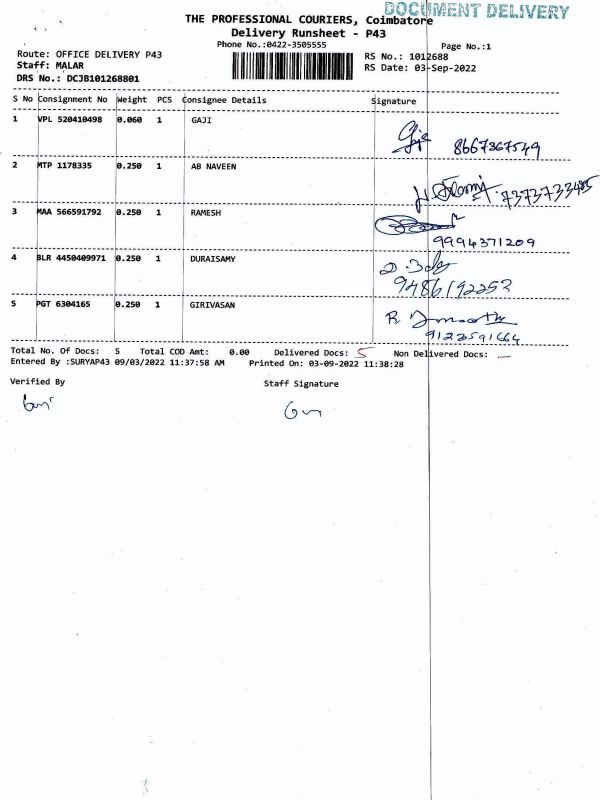 DOCUMENT DELIVERY
THE PROFESSIONAL COURIERS, Coimbatore
Delivery Runsheet - P43
Phone No.:0422-3505555
Page No.:1
Route: OFFICE DELIVERY P43
RS No.: 1012688
Staff: MALAR
RS Date: 03-Sep-2022
DRS No.: DCJB101268801
S No Consignment No Weight PCS Consignee Details Signature
1 VPL 520410498 0.060 1 GAJI
8667367549
2 MTP 1178335 0.250 1 AB NAVEEN
7373733485
3 MAA 566591792 0.250 1 RAMESH
9994371209
4 BLR 4450409971 0.250 1 DURAISAMY
9486192252
5 PGT 6304165 0.250 1 GIRIVASAN
9122591664
Total No. Of Docs: 5 Total COD Amt: 0.00 Delivered Docs: 5 Non Delivered Docs: —
Entered By :SURYAP43 09/03/2022 11:37:58 AM Printed On: 03-09-2022 11:38:28
Verified By Staff Signature